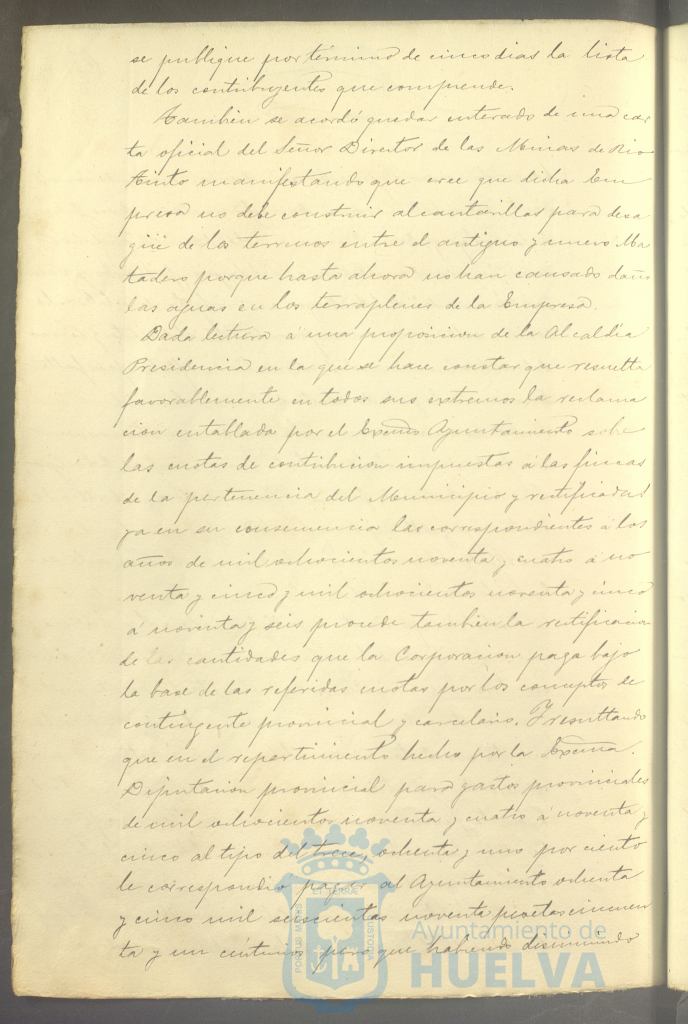 se publique por término de cinco dias la lista
de los contribuyentes que comprende.
Tambien se acordó quedar enterado de una car
ta oficial del Señor Director de las Minas de Rio
Tinto manifestando que cree que dicha Em
presa no debe construir alcantarillas para desa
güe de los terrenos entre el antiguo y nuevo Ma
tadero porque hasta ahora no han causado daño
las aguas en los terraplenes de la Empresa.
Dada lectura á una proposicion de la Alcaldia
Presidencia en la que se hace constar que resuelta
favorablemente en todos sus extremos la reclama
cion entablada por el Excmo Ayuntamiento sobre
las cuotas de contribucion impuestas á las fincas
de la pertenencia del Municipio y rectificadas
ya en su consecuencia las correspondientes á los
años de mil ochocientos noventa y cuatro á no
venta y cinco y mil ochocientos noventa y cinco
á noventa y seis procede tambien la rectificacion
de las cantidades que la Corporacion paga bajo
la base de las referidas cuotas por los conceptos de
contingente provincial y carcelario. Y resultando
que en el repartimiento hecho por la Excma.
Diputacion provincial para gastos provinciales
de mil ochocientos noventa y cuatro á noventa y
cinco al tipo del trece, ochenta y uno por ciento
le correspondió pagar al Ayuntamiento ochenta
y cinco mil seiscientas noventa pesetas cincuen
ta y un céntimos pero que habiendo disminuido
PORTUS MARIS ET TERRAE CUSTODIA
Ayuntamiento de
HUELVA